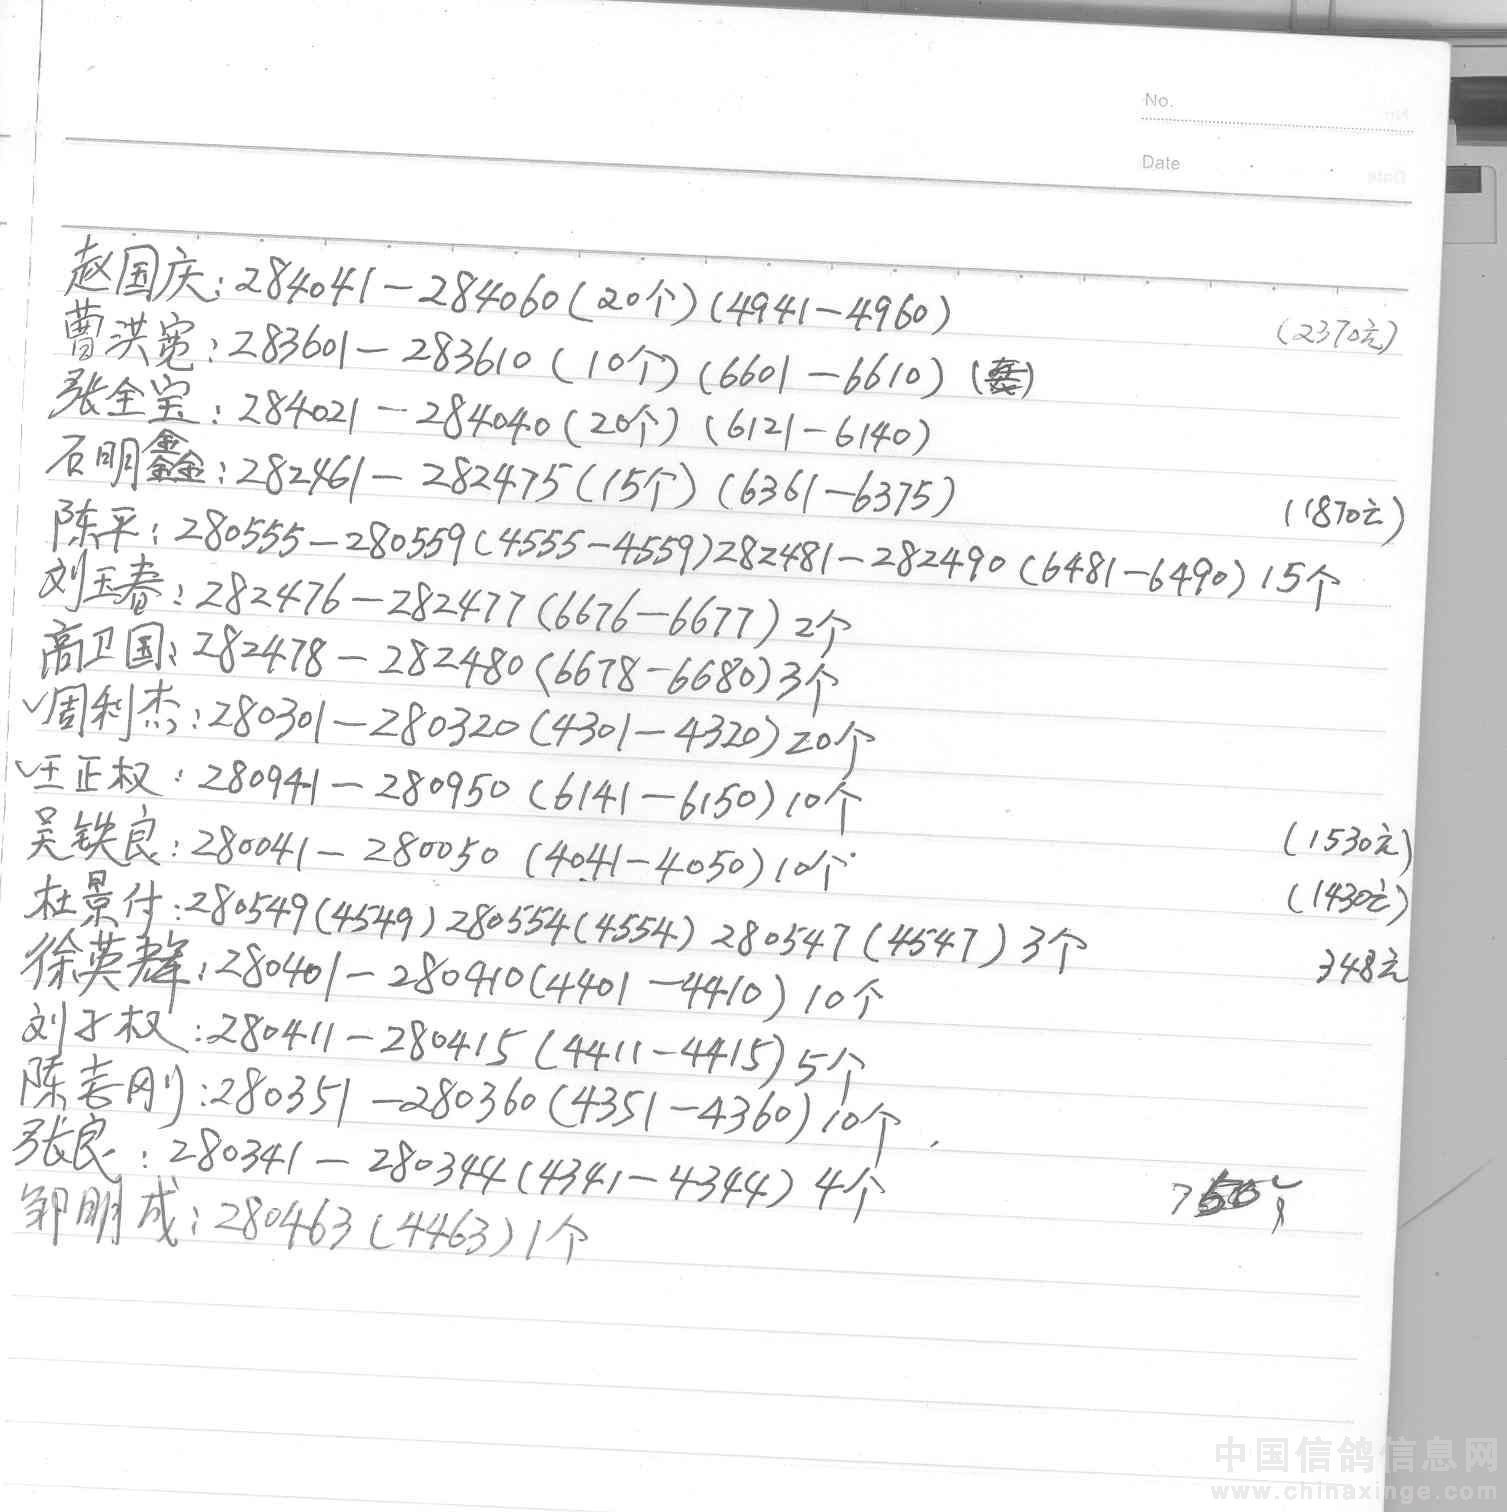 No.
Date
赵国庆:284041-284060(20个)(4941-4960)
(2370元)
曹洪宽:283601-283610(10个)(6601-6610)
张全宝:284021-284040(20个)(6121-6140)
石明鑫:282461-282475(15个)(6361-6375)
(1870元)
陈平:280555-280559(4555-4559)282481-282490(6481-6490)15个
刘玉春:282476-282477(6676-6677)2个
高卫国:282478-282480(6678-6680)3个
✓周利杰:280301-280320(4301-4320)20个
✓王正权:280941-280950(6141-6150)10个
(1530元)
吴铁良:280041-280050(4041-4050)10个
(1430元)
杜景付:280549(4549)280554(4554)280547(4547)3个
348元
徐英群:280401-280410(4401-4410)10个
刘子权:280411-280415(4411-4415)5个
陈志刚:280351-280360(4351-4360)10个
张良:280341-280344(4341-4344)4个
邹明成:280463(4463)1个
中国信鸽信息网
www.chinaxinge.com